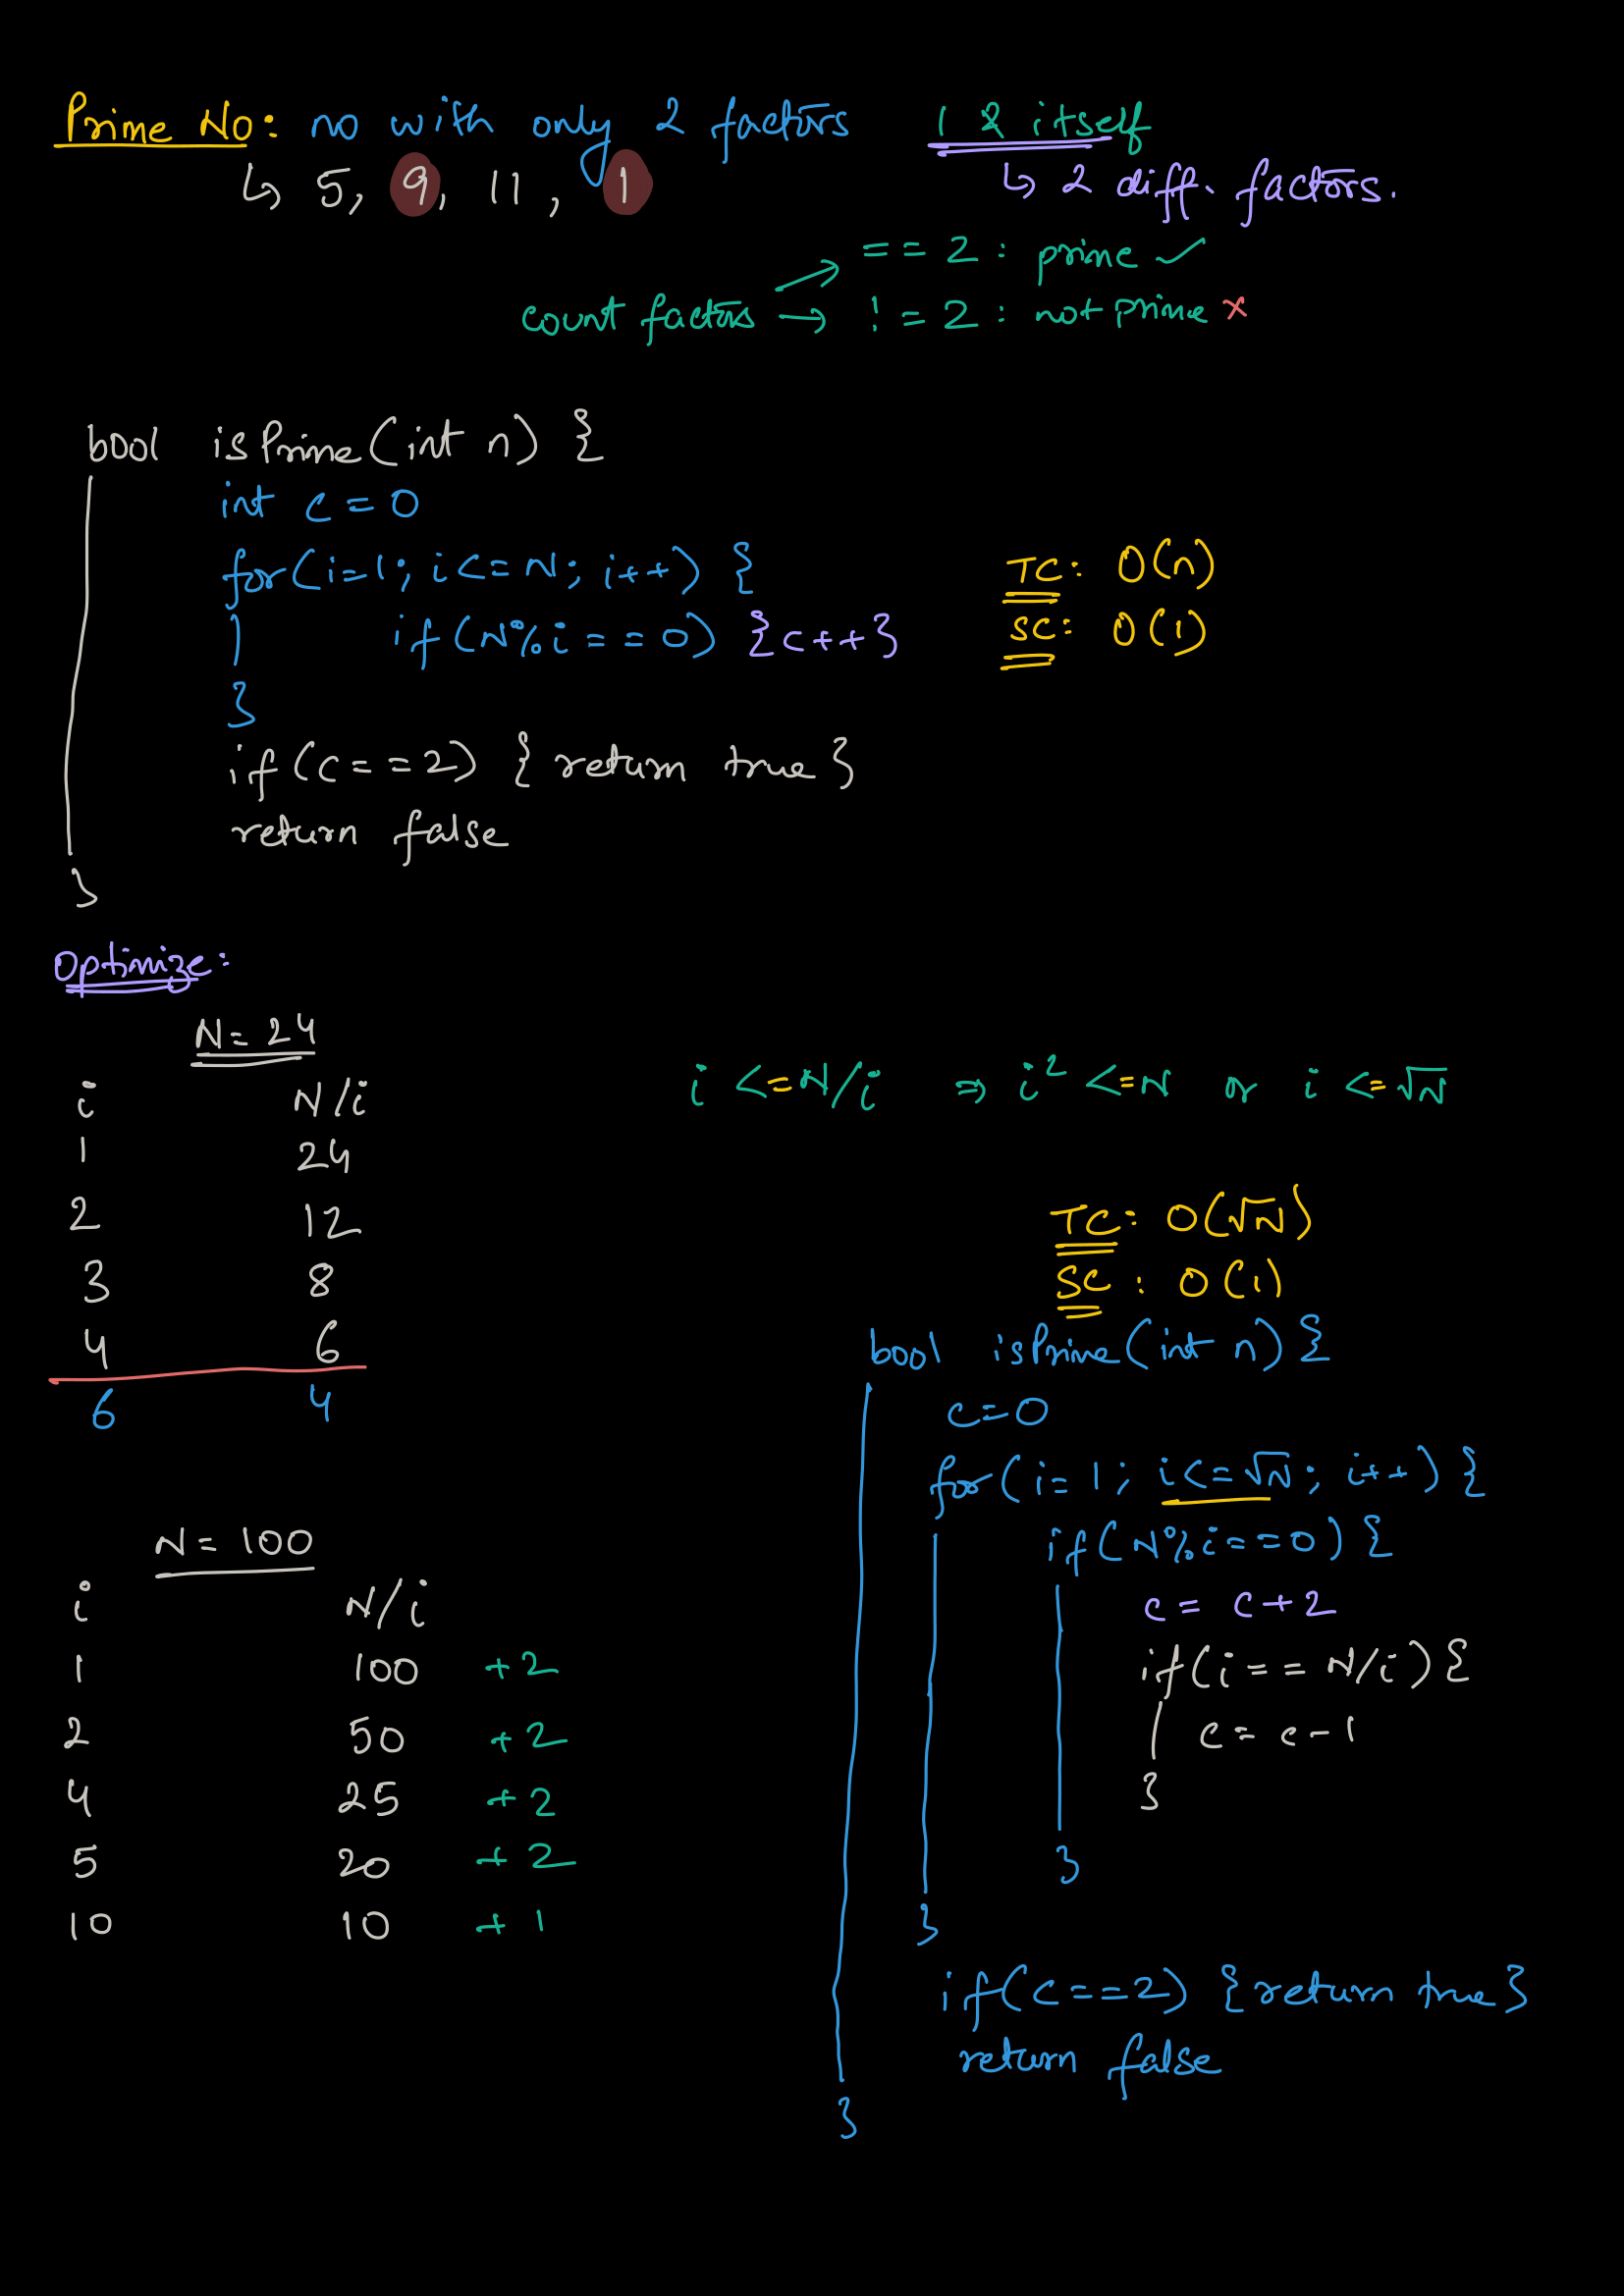 Prime No: no with only 2 factors 1 & itself
↳ 5, 9, 11, 1 ↳ 2 diff. factors.
== 2 : prime ✓
count factors → != 2 : not prime x
bool isPrime(int n) {
int c = 0
for(i=1; i<=N; i++) {
if(N%i==0) {c++}
}
if(c==2) {return true}
return false
}
TC: O(n)
SC: O(1)
Optimize:
N = 24
i N/i
1 24
2 12
3 8
4 6
6 4
i <= N/i ⇒ i² <= N or i <= √N
N = 100
i N/i
1 100 +2
2 50 +2
4 25 +2
5 20 +2
10 10 +1
TC: O(√N)
SC: O(1)
bool isPrime(int n) {
c=0
for(i=1; i<=√N; i++) {
if(N%i==0) {
c = c+2
if(i == N/i) {
c = c-1
}
}
}
if(c==2) {return true}
return false
}